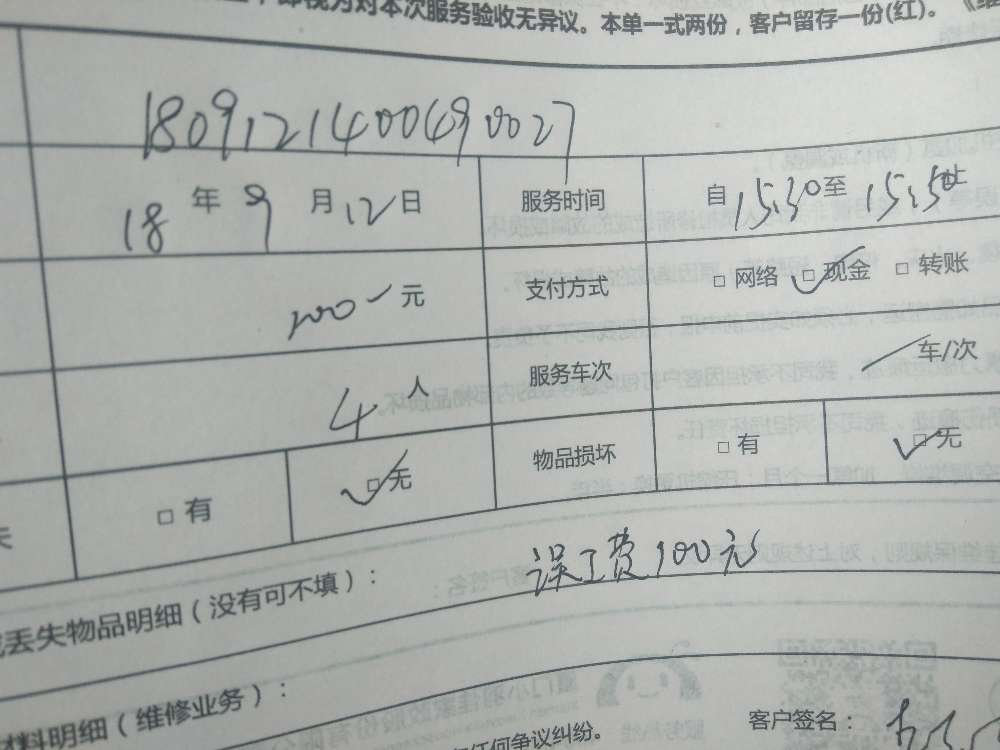 即视为对本次服务验收无异议。本单一式两份，客户留存一份(红)。
1809121400490027
18 年 9 月 12 日 服务时间 自 15:30 至 15:50 止
200 元 支付方式 □ 网络 □ 现金 □ 转账
4 人 服务车次 车/次
□ 有 □ 无 物品损坏 □ 有 □ 无
丢失物品明细（没有可不填）： 误工费100元
材料明细（维修业务）：
任何争议纠纷。 客户签名：